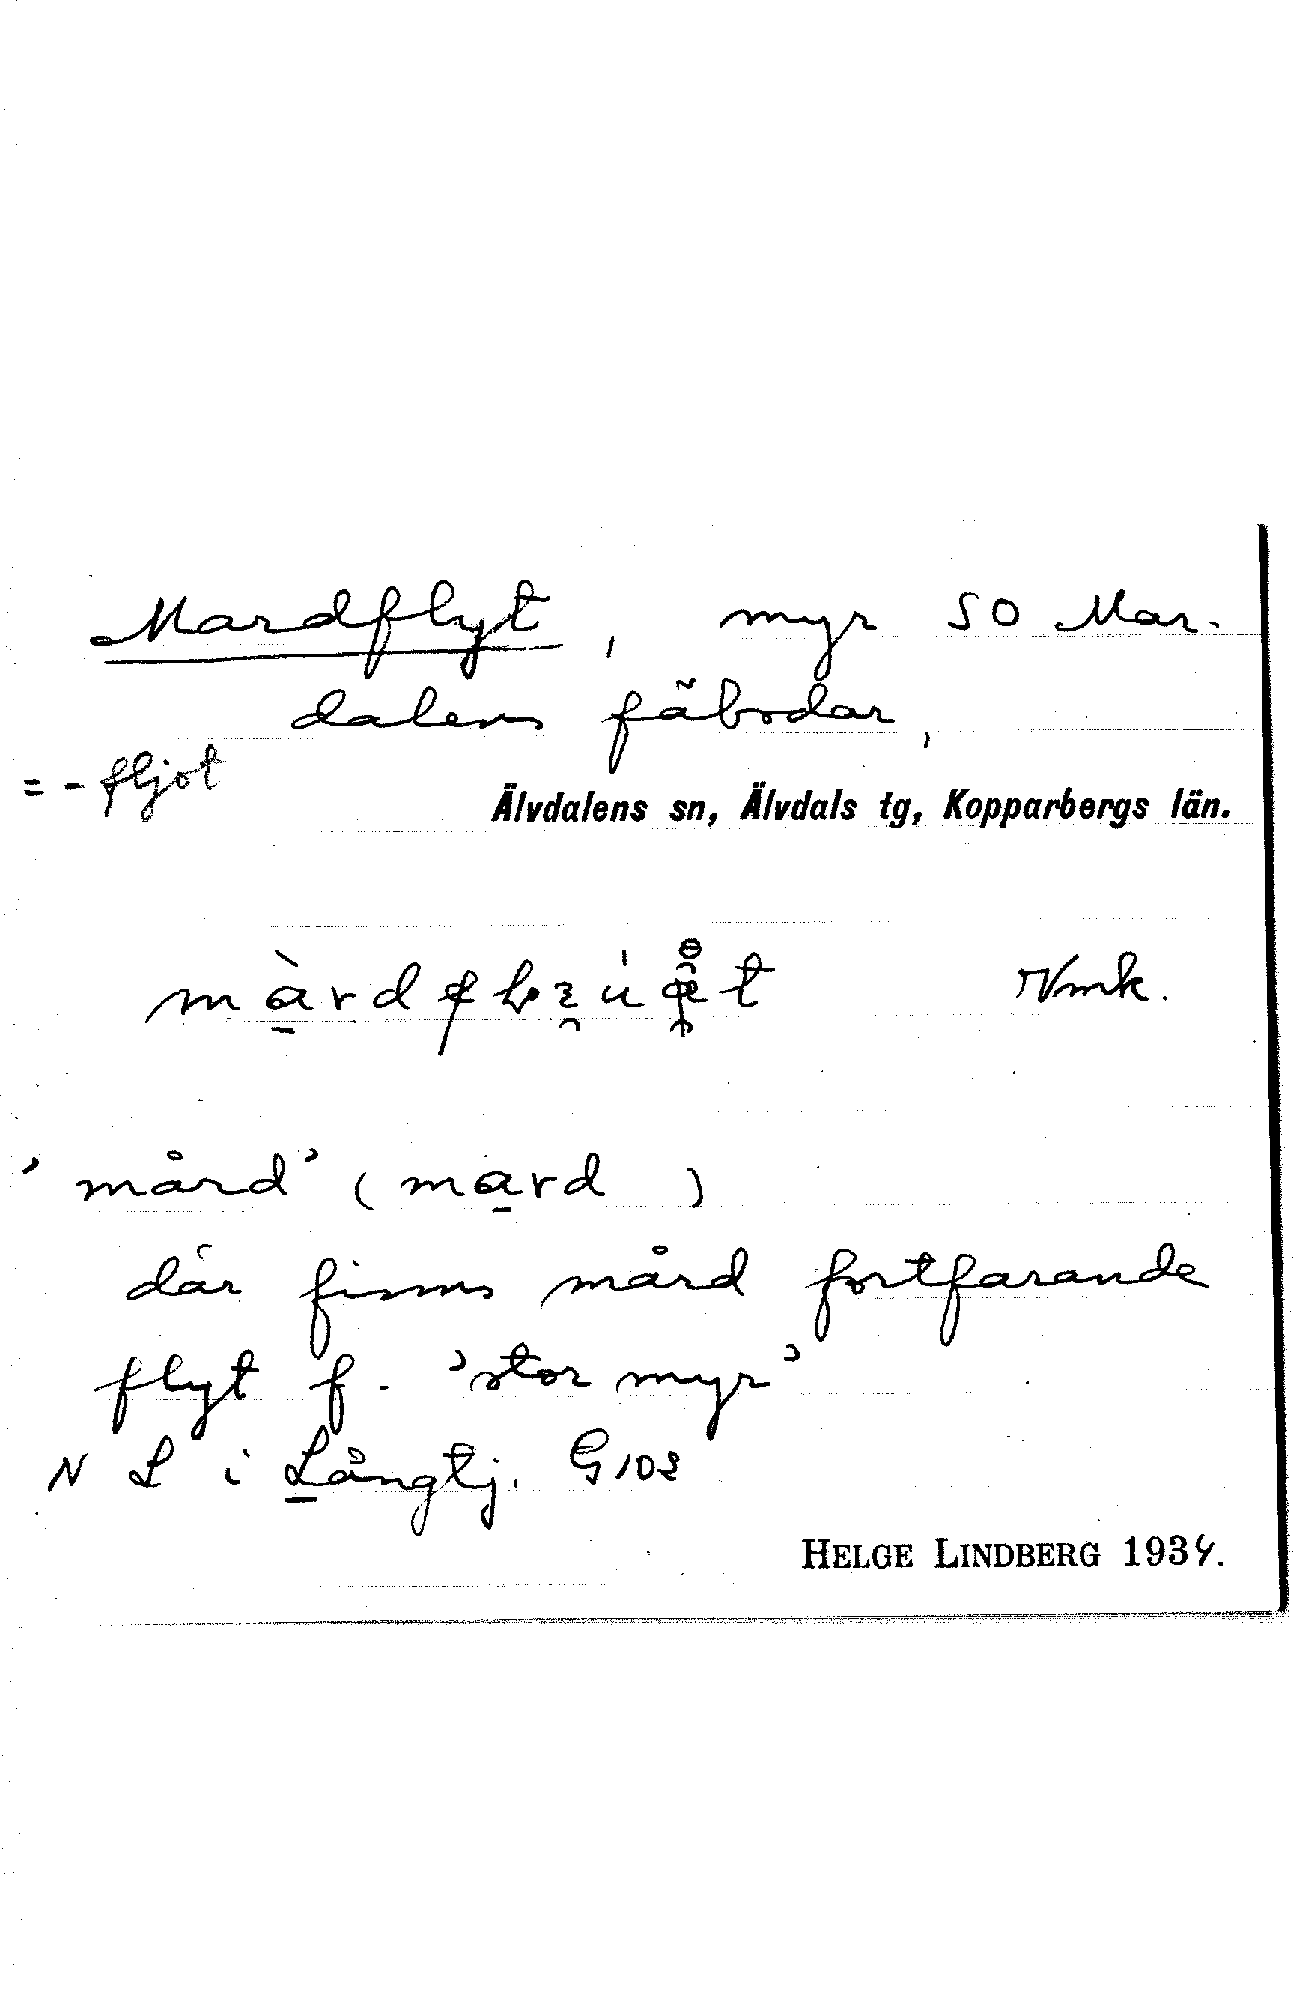 Mardflyt, myr SO Mar-
dalens fäbodar,
= - fljot
Älvdalens sn, Älvdals tg, Kopparbergs län.
Nmk.
'mård' (mard )
där finns mård fortfarande
flyt f. 'stor myr'
N L i Långtj. G103
HELGE LINDBERG 1934.